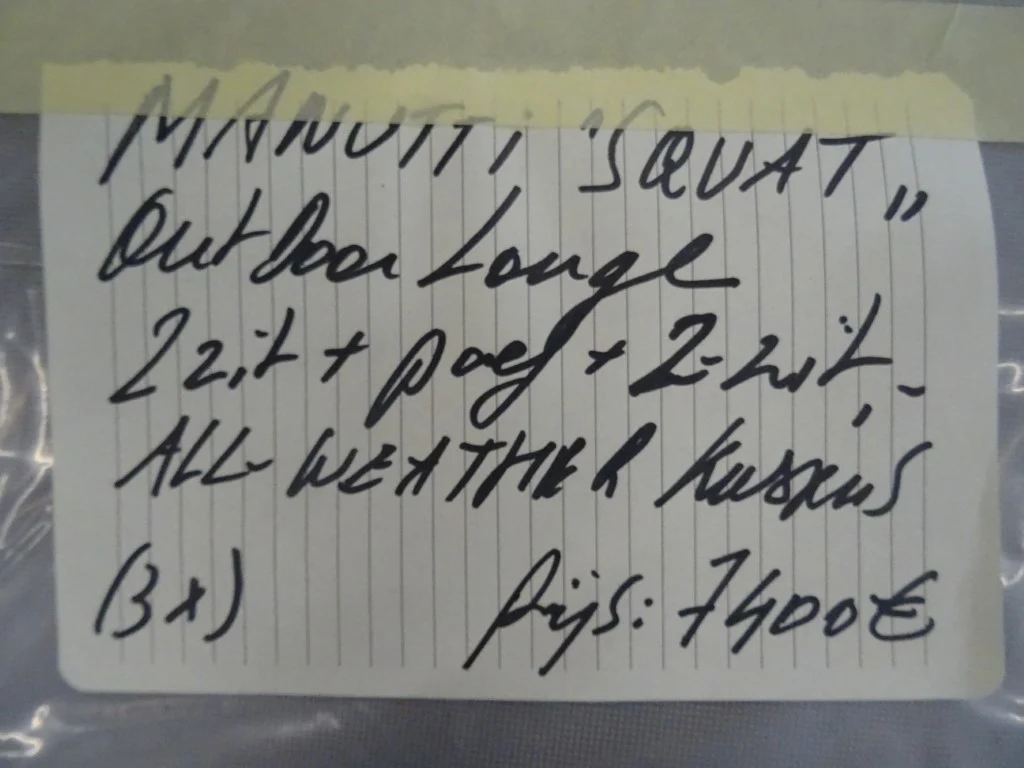 MANUTTI 'SQUAT„
OutDoor Louge
2zit + poef + 2-zit-
ALL-WEATHER Kussens
(3x) Prijs: 7400€